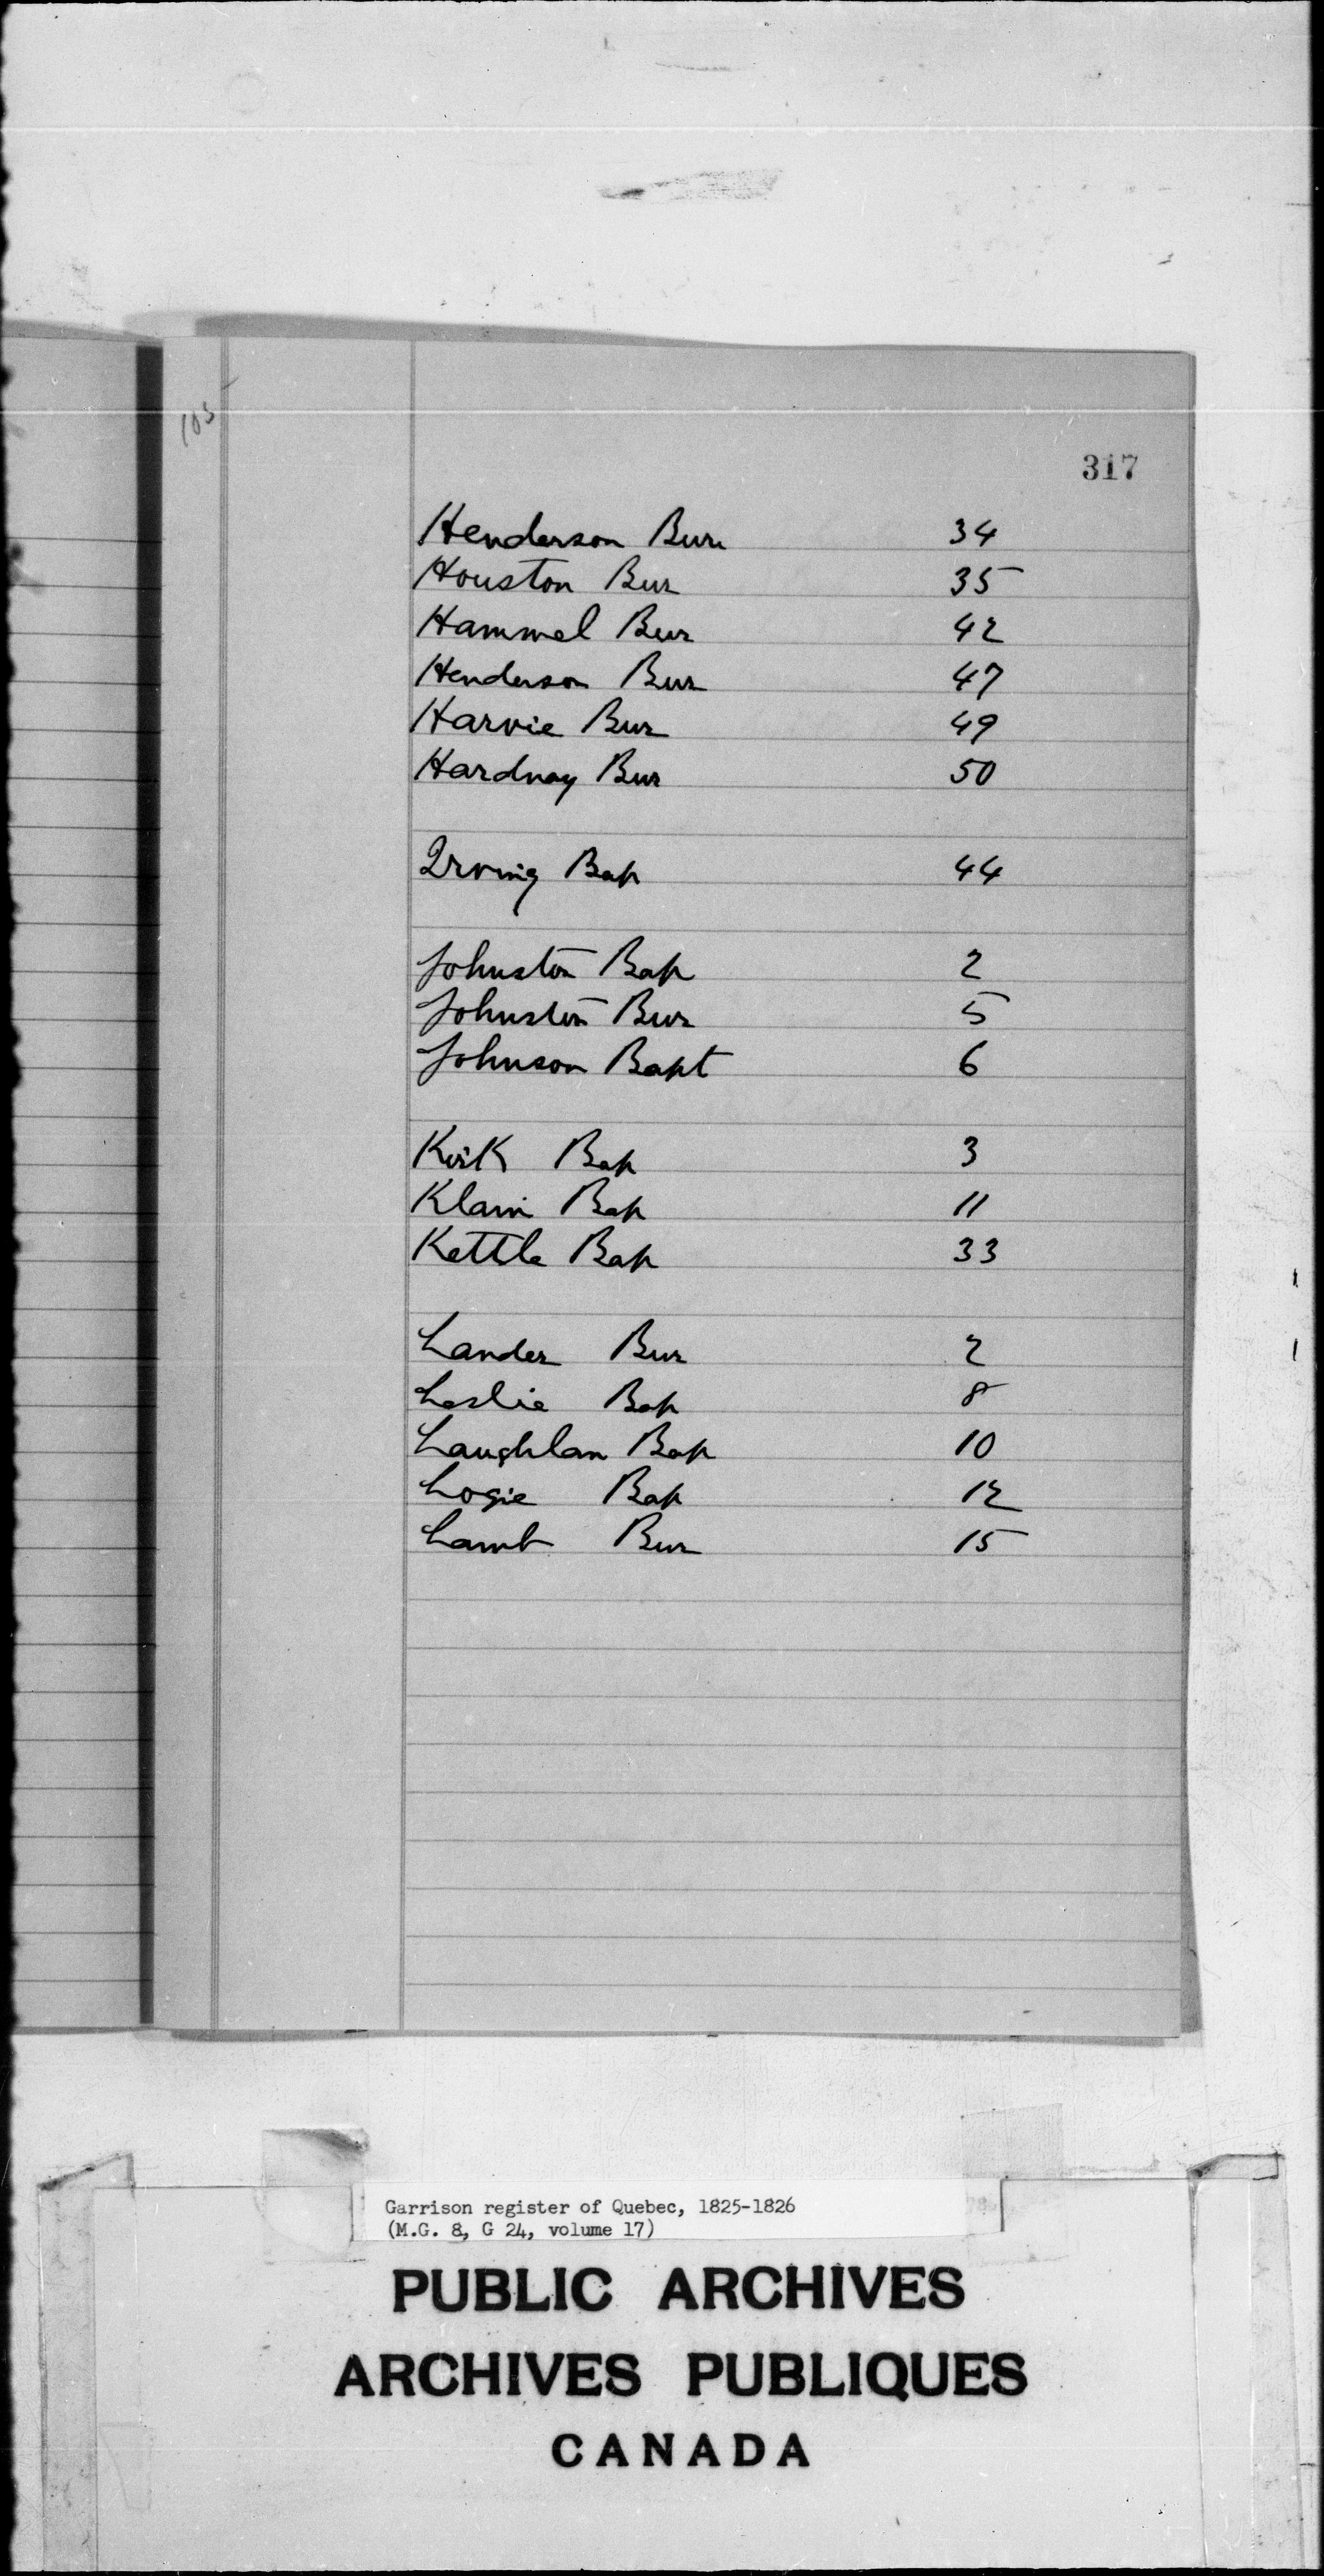 105
317
Henderson Bur 34
Houston Bur 35
Hammel Bur 42
Henderson Bur 47
Harvie Bur 49
Bur 50
Irving Bap 44
Johnston Bap 2
Johnston Bur 5
Johnson Bapt 6
Kirk Bap 3
Klain Bap 11
Kettle Bap 33
Lander Bur 2
Leslie Bap 8
Laughlan Bap 10
Logie Bap 12
Lamb Bur 15
Garrison register of Quebec, 1825-1826
(M.G. 8, G 24, volume 17)
PUBLIC ARCHIVES
ARCHIVES PUBLIQUES
CANADA